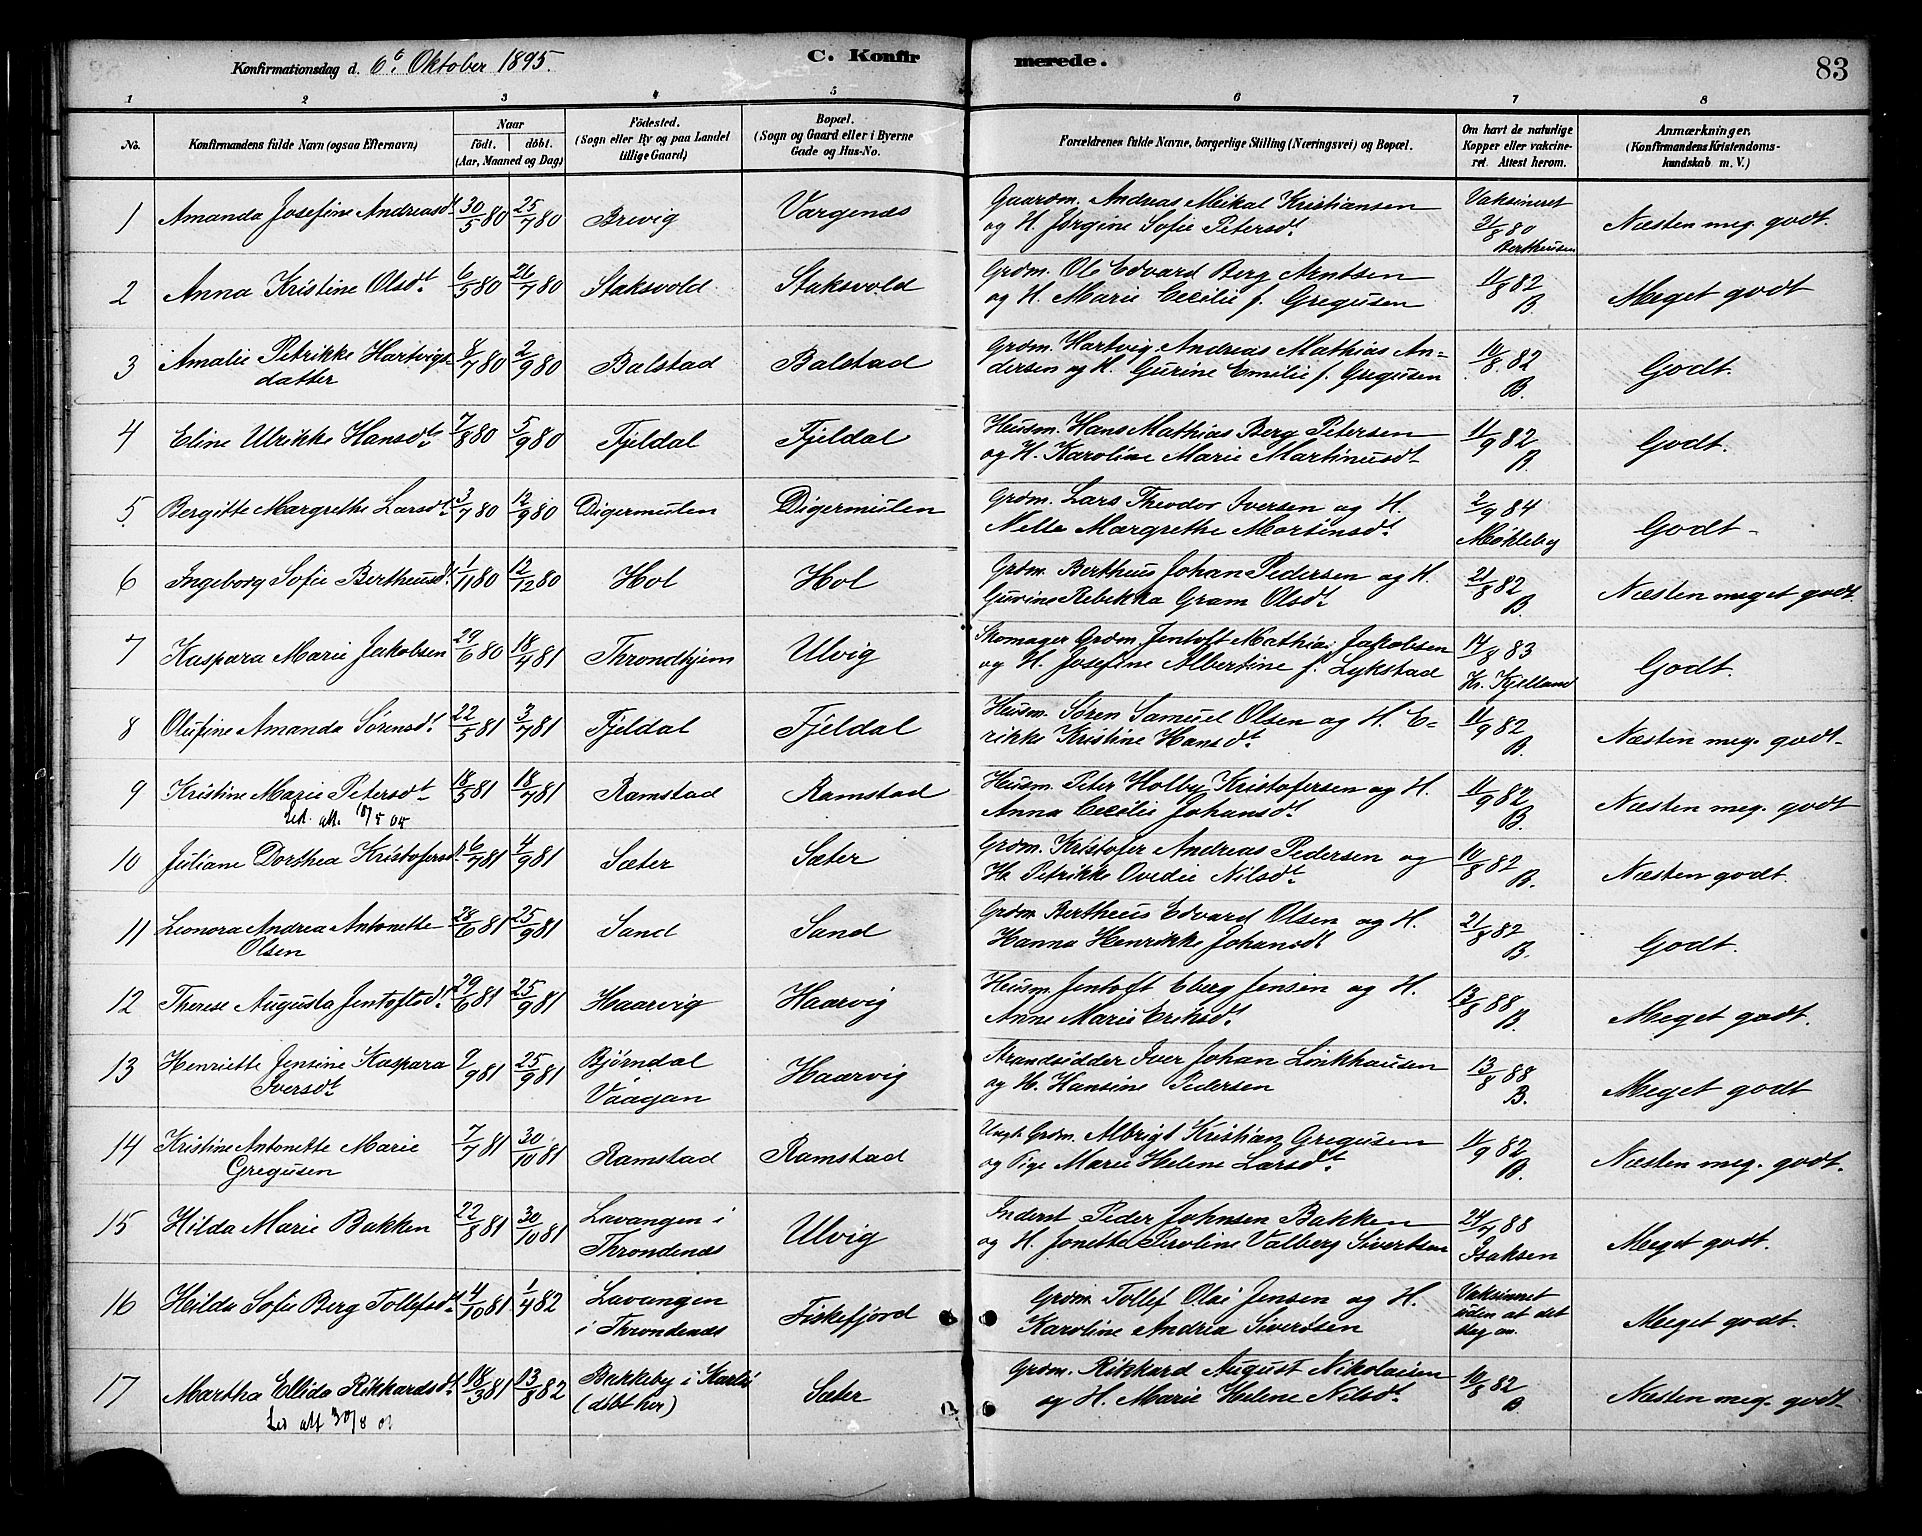 Konfirmationsdag d. 6te Oktober 1895.
C. Konfirmerede.
83
1 2 3 4 5 6 7 8
No.
Konfirmandens fulde Navn (ogsaa Efternavn)
Naar
födt. döbt.
(Aar, Maaned og Dag)
Födested.
(Sogn eller By og paa Landet
tillige Gaard)
Bopæl.
(Sogn og Gaard eller i Byerne
Gade og Hus-No.
Forældrenes fulde Navne, borgerlige Stilling (Næringsvei) og Bopæl.
Om havt de naturlige
Kopper eller vakcine-
ret. Attest herom.
Anmærkninger.
(Konfirmandens Kristendoms-
kundskab m. V.)
1 Amanda Josefine Andreasdt. 30/5 80 25/7 80 Brevig Vargenæs
Gaardm. Andreas Mikal Kristiansen
og H. Jørgine Sofie Petersdt.
Vaksineret
21/8 80
Bertheusen
Næsten meg. godt.
2 Anna Kristine Olsdt. 6/5 80 26/7 80 Staksvold Staksvold
Grdm. Ole Edvard Berg Arntsen
og H. Marie Cecilie f. Gregusen
11/8 82
B.
Meget godt
3 Amalie Petrikke Hartvigs
datter
8/7 80 2/9 80 Balstad Balstad
Grdm. Hartvig Andreas Mathias An-
dersen og H. Gurine Emilie f. Gregusen
10/8 82
B.
Godt.
4 Eline Ulrikke Hansdt. 7/8 80 5/9 80 Fjeldal Fjeldal
Husm. Hans Mathias Berg Petersen
og H. Karoline Marie Martinusdt
11/9 82
B.
Godt.
5 Bergitte Margrethe Larsdt. 3/7 80 12/9 80 Digermulen Digermulen
Grdm. Lars Theodor Iversen og H.
Nella Margrethe Mortensdt.
2/9 84
Møkleby
Godt-
6 Ingeborg Sofie Bertheusdt. 1/11 80 12/12 80 Hol Hol
Grdm. Bertheus Johan Pedersen og H.
Gurine Rebekka Gram Olsdt.
21/8 82
B.
Næsten meget godt.
7 Kaspara Marie Jakobsen 29/6 80 18/4 81 Throndhjem Ulvig
Skomager Grdm. Jentoft Mathias Jakobsen
og H. Josefine Albertine f. Lykstad
14/8 83
Kr. Kjelland
Godt.
8 Olufine Amanda Sörensdt. 22/5 81 3/7 81 Fjeldal Fjeldal
Husm. Sören Samuel Olsen og H. E-
rikke Kristine Hansdt.
11/9 82
B.
Næsten meg. godt-
9 Kristine Marie Petersdt. 18/5 81 18/7 81 Ramstad Ramstad
Husm. Peter Holby Kristofersen og H.
Anna Cecilie Johansdt.
11/9 82
B.
Næsten meg. godt
10 Juliane Dorthea Kristofersdt. 6/7 81 4/9 81 Sæter Sæter
Grdm. Kristofer Andreas Pedersen og
H. Petrikke Ovedie Nilsdt.
10/8 82
B.
Næsten godt.
11 Leonora Andrea Antonette
Olsen
28/6 81 25/9 81 Sand Sand
Grdm. Bertheus Edvard Olsen og H.
Hanna Henrikke Johansdt
21/8 82
B.
Godt.
12 Therese Augusta Jentoftsdt. 29/6 81 25/9 81 Haarvig Haarvig
Husm. Jentoft Eberg Jensen og H.
Anne Marie Eriksdt.
13/8 88
B.
Meget godt.
13 Henriette Jensine Kaspara
Iversdt
9/9 81 25/9 81 Bjørndal
Vaagan
Haarvig
Strandsidder Iver Johan Linkhausen
og H. Hansine Pedersen
13/8 88
B.
Meget godt
14 Kristine Antonette Marie
Gregusen
7/7 81 30/10 81 Ramstad Ramstad
Ungk. Grdm. Albrigt Kristian Gregusen
og Pige Marie Helene Larsdt.
11/9 82
B.
Næsten meg. godt.
15 Hilda Marie Bakken 22/8 81 30/10 81 Lavangen i
Throndenæs
Ulvig
Inderst Peder Johnsen Bakken
og H. Jonette Peroline Valberg Sivertsen
24/7 88
Isaksen
Meget godt.
16 Hilda Sofie Berg Tollefsdt. 4/10 81 1/4 82 Lavangen
i Throndenæs
Fiskefjord
Grdm. Tollef Olai Jensen og H.
Karoline Andrea Sivertsen
Vaksineret
uden at det
slog an.
Meget godt.
17 Martha Ellida Rikkardsdt. 18/3 81 13/8 82 Bakkeby i Karlsö
(døbt her)
Sæter
Grdm. Rikkard August Nikolaisen
og H. Marie Helene Nilsdt.
10/8 82
B.
Næsten meg. godt-